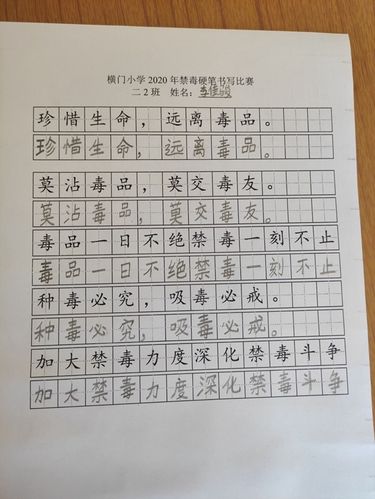 横门小学 2020 年禁毒硬笔书写比赛
二 2 班 姓名：李佳
珍惜生命，远离毒品。
珍惜生命，远离毒品。
莫沾毒品，莫交毒友。
莫沾毒品，莫交毒友。
毒品一日不绝禁毒一刻不止
毒品一日不绝禁毒一刻不止
种毒必究，吸毒必戒。
种毒必究，吸毒必戒。
加大禁毒力度深化禁毒斗争
加大禁毒力度深化禁毒斗争